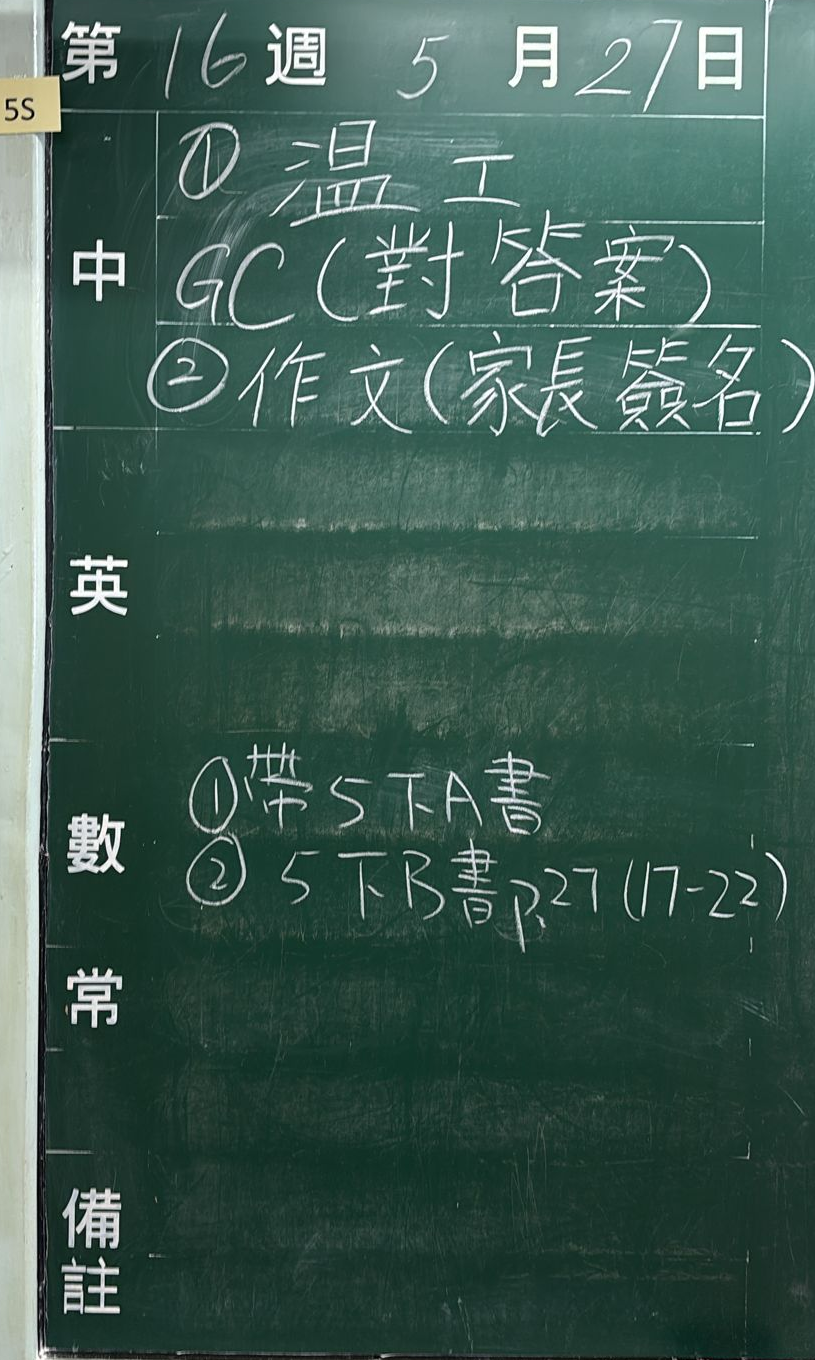 第16週 5月27日
5S
中
① 温工
GC(對答案)
②作文(家長簽名)
英
數
①帶5下A書
② 5下B書p.27(17-22)
常
備註